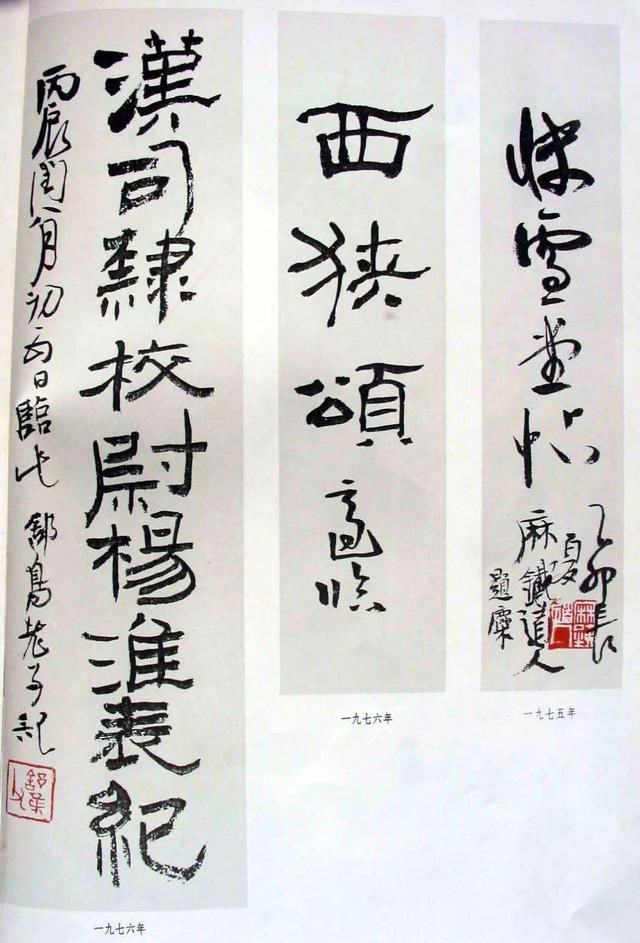 快雪堂帖
乙卯長夏
麻鐵道人
一九七五年
西狹頌
臨
一九七六年
漢司隸校尉楊淮表紀
丙辰閏八月初日臨此 舒鳧老子記
一九七六年